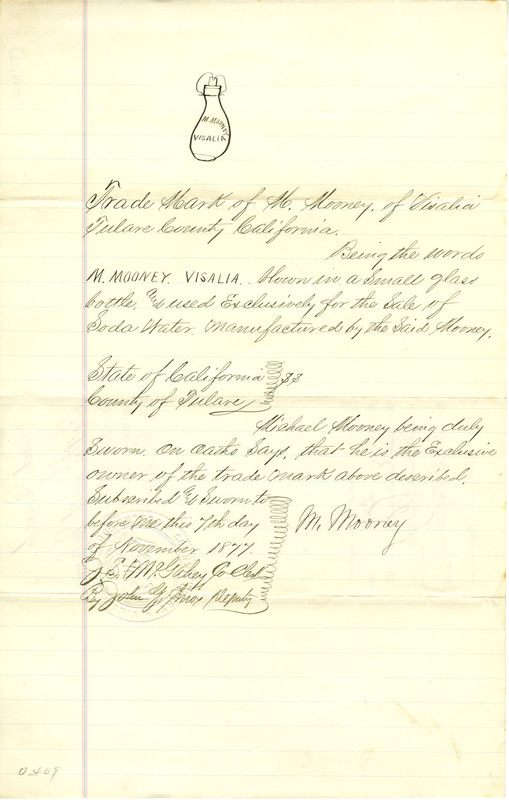 M. MOONEY
VISALIA
Trade Mark of M. Mooney. of Visalia
Tulare County California.
Being the words
M. MOONEY. VISALIA. blown in a Small glass
bottle. & used Exclusively for the Sale of
Soda Water. Manufactured by the Said Mooney.
State of California } SS
County of Tulare
Michael Mooney being duly
Sworn. on oaths Says, that he is the Exclusive
owner of the trade mark above described.
Subscribed & Sworn to
before me, this 7th day
of November 1877.
M. Mooney
Co Clk
By John Knox Deputy